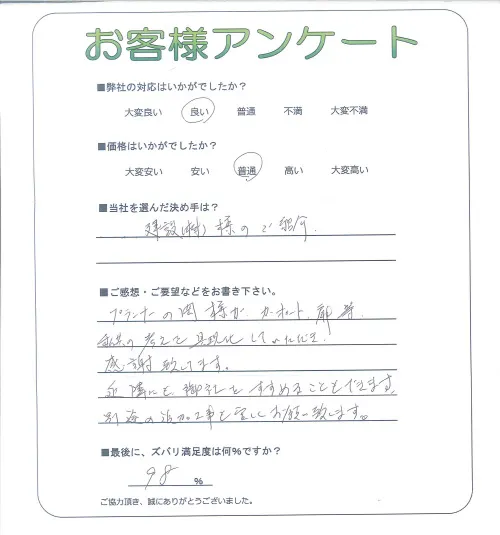 お客様アンケート
■弊社の対応はいかがでしたか？
大変良い 良い 普通 不満 大変不満
■価格はいかがでしたか？
大変安い 安い 普通 高い 大変高い
■当社を選んだ決め手は？
建設(株)様のご紹介.
■ご感想・ご要望などをお書き下さい。
プランナーの岡様が、カーポート、扉等、
私共の考えを具現化していただき、
感謝致してます。
近隣にも御社をすすめることもできます。
別途の追加工事も宜しくお願い致します。
■最後に、ズバリ満足度は何％ですか？
98 ％
ご協力頂き、誠にありがとうございました。